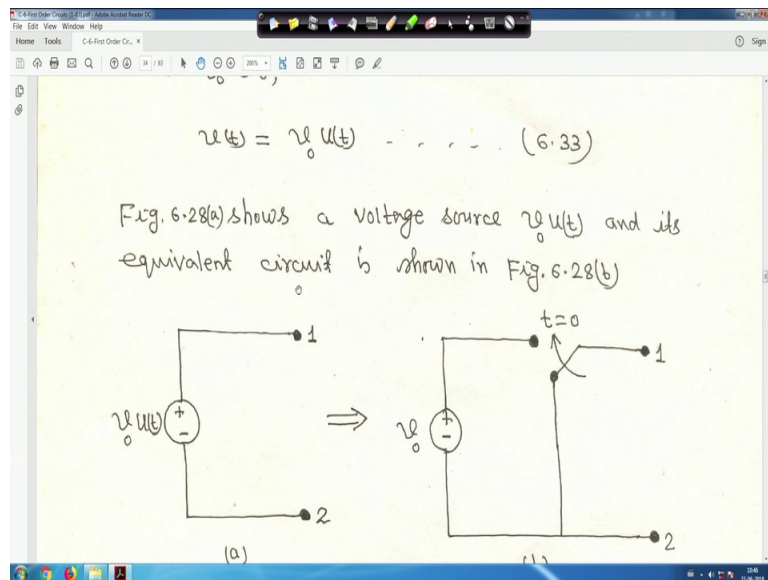 C-6-First Order Circuits [1-83].pdf - Adobe Acrobat Reader DC
File Edit View Window Help
Home Tools C-6-First Order Cir... × Sign
34 / 83 200%
v(t) = v₀ u(t) - - - - - - (6.33)
Fig. 6.28(a) shows a voltage source v₀ u(t) and its
equivalent circuit is shown in Fig. 6.28(b)
t=0
1 1
v₀ u(t) + - ⇒ v₀ + -
2 2
(a)
10:46